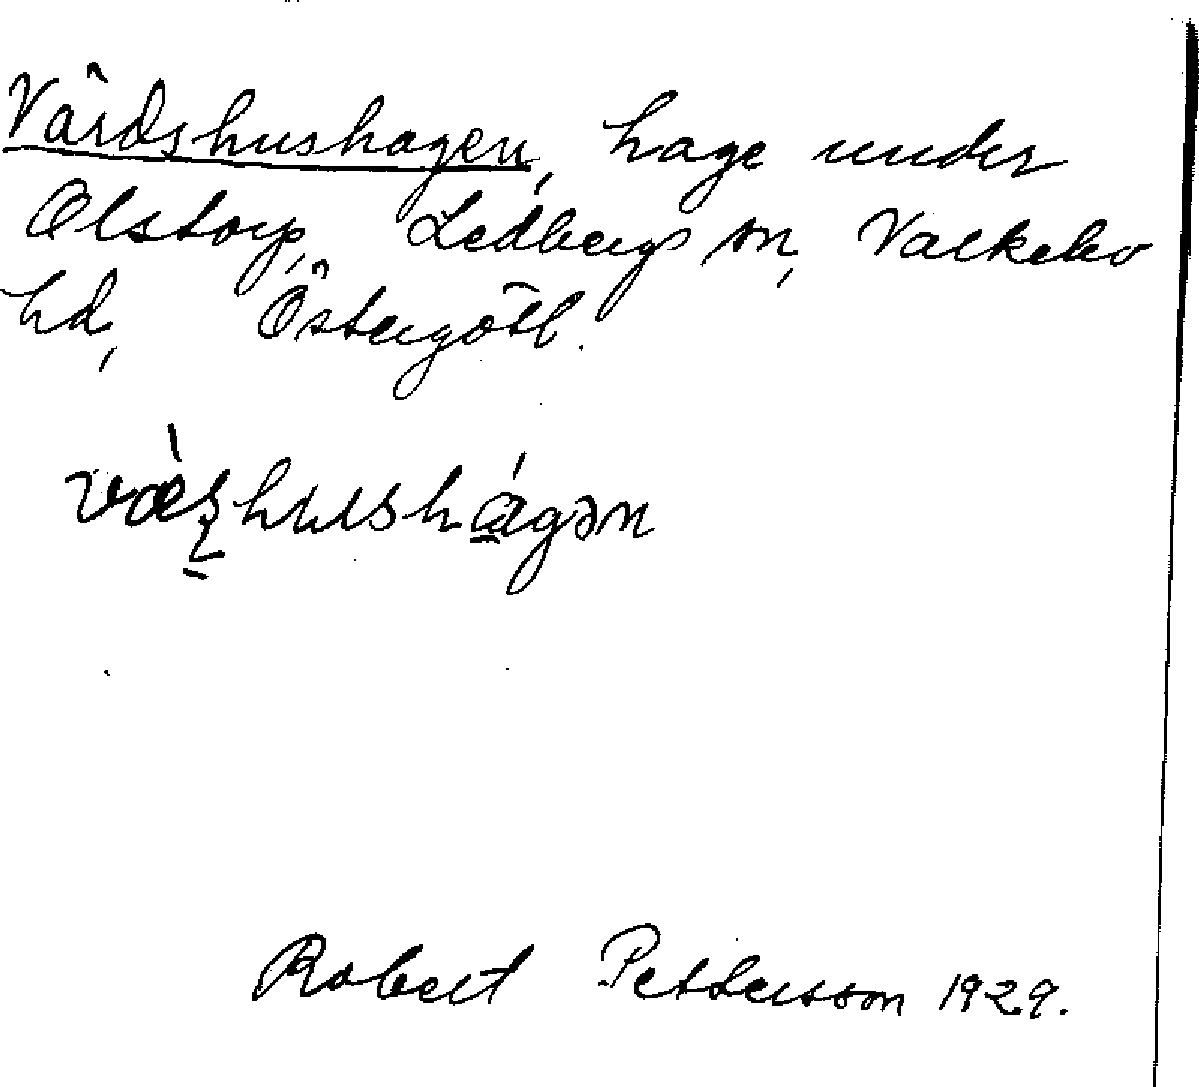 Värdshushagen, hage under
Olstorp, Ledbergs sn, Valkebo
hd, Östergötl.
Robert Pettersson 1929.